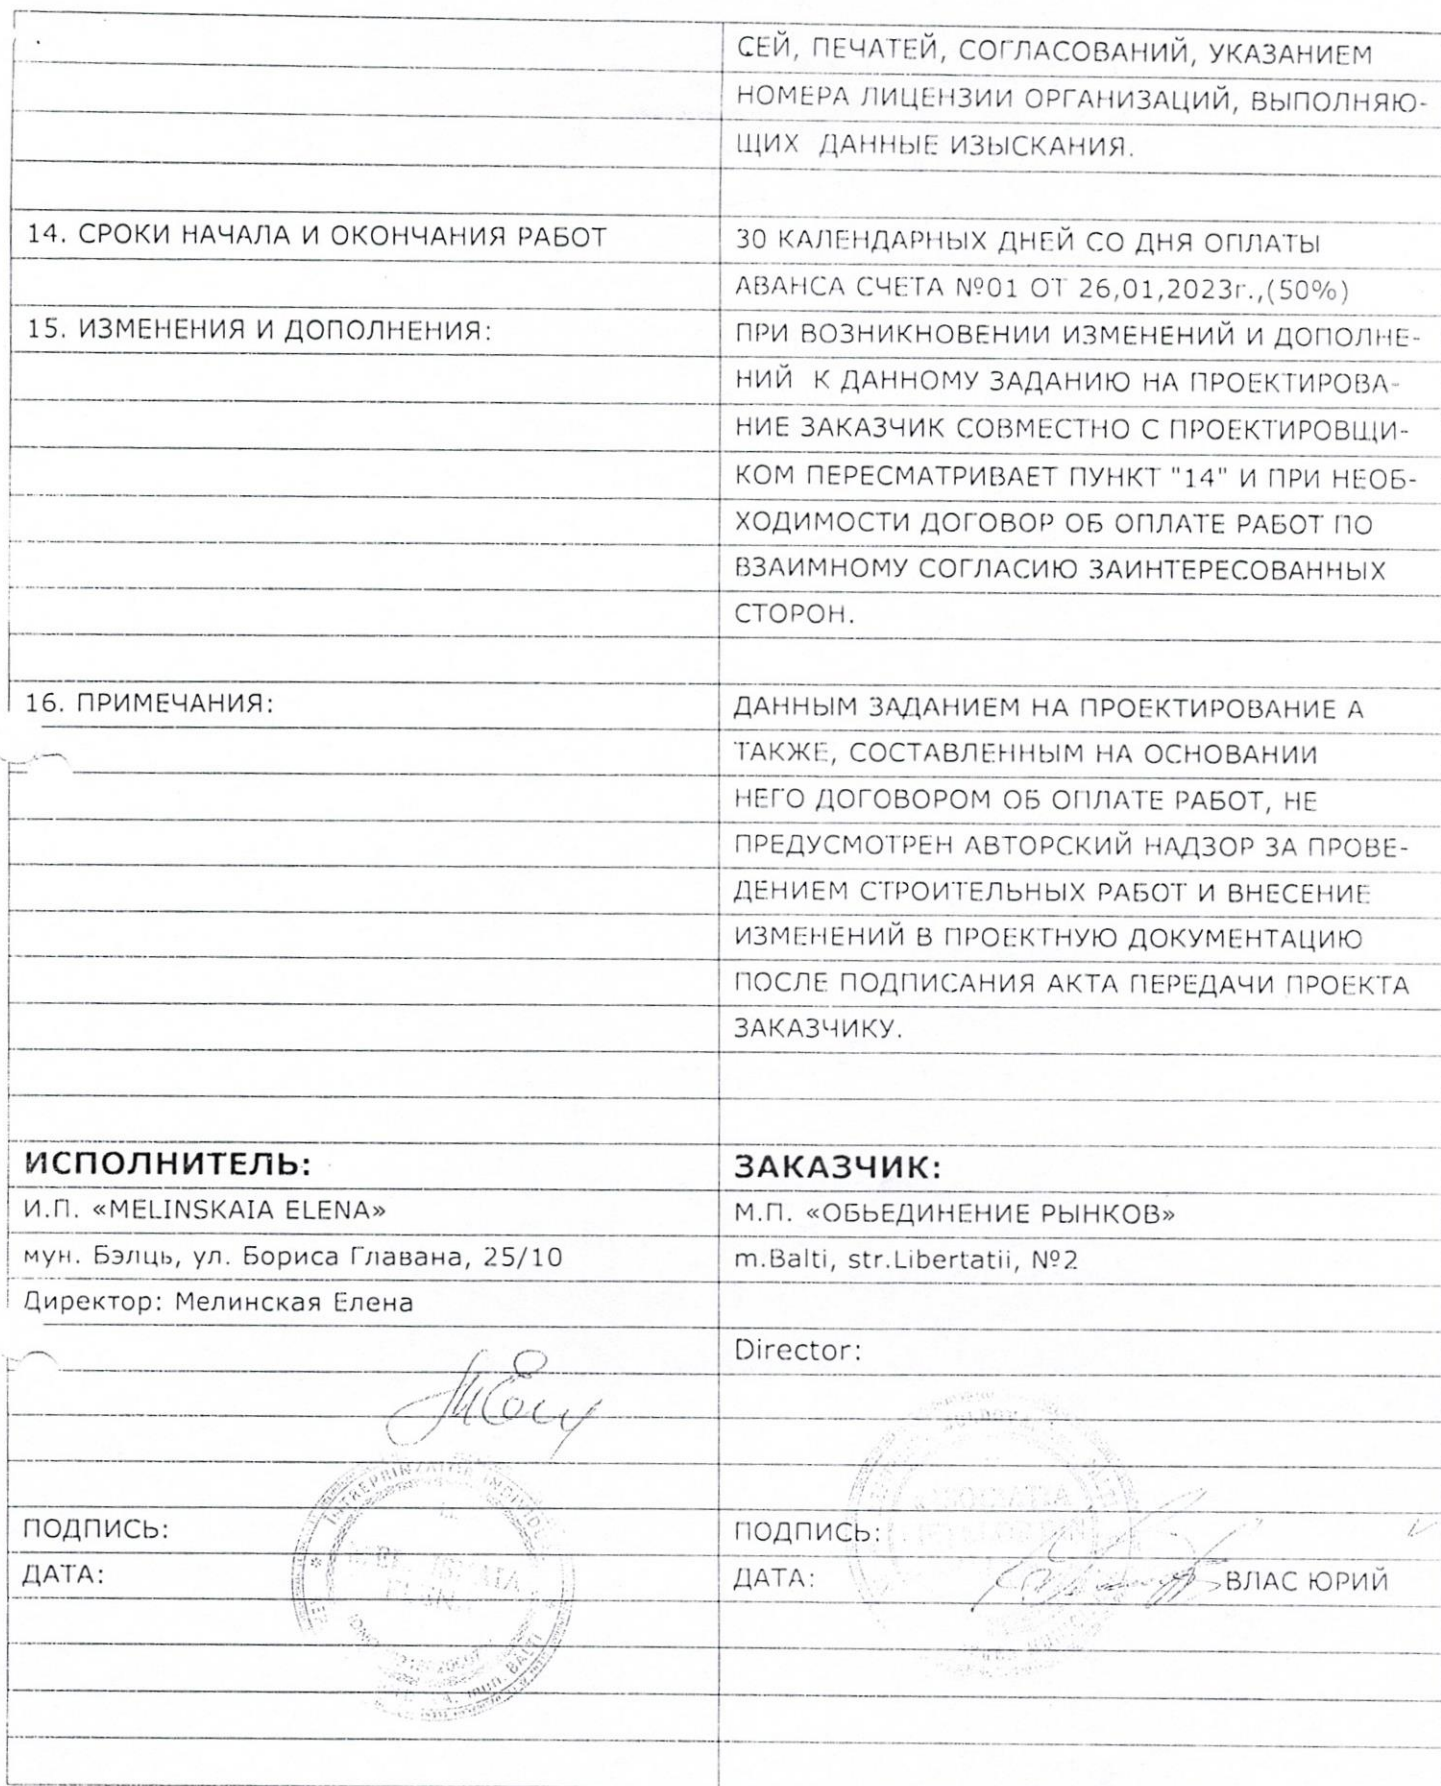 СЕЙ, ПЕЧАТЕЙ, СОГЛАСОВАНИЙ, УКАЗАНИЕМ
НОМЕРА ЛИЦЕНЗИИ ОРГАНИЗАЦИЙ, ВЫПОЛНЯЮ-
ЩИХ ДАННЫЕ ИЗЫСКАНИЯ.
14. СРОКИ НАЧАЛА И ОКОНЧАНИЯ РАБОТ
30 КАЛЕНДАРНЫХ ДНЕЙ СО ДНЯ ОПЛАТЫ
АВАНСА СЧЕТА №01 ОТ 26,01,2023г.,(50%)
15. ИЗМЕНЕНИЯ И ДОПОЛНЕНИЯ:
ПРИ ВОЗНИКНОВЕНИИ ИЗМЕНЕНИЙ И ДОПОЛНЕ-
НИЙ К ДАННОМУ ЗАДАНИЮ НА ПРОЕКТИРОВА-
НИЕ ЗАКАЗЧИК СОВМЕСТНО С ПРОЕКТИРОВЩИ-
КОМ ПЕРЕСМАТРИВАЕТ ПУНКТ "14" И ПРИ НЕОБ-
ХОДИМОСТИ ДОГОВОР ОБ ОПЛАТЕ РАБОТ ПО
ВЗАИМНОМУ СОГЛАСИЮ ЗАИНТЕРЕСОВАННЫХ
СТОРОН.
16. ПРИМЕЧАНИЯ:
ДАННЫМ ЗАДАНИЕМ НА ПРОЕКТИРОВАНИЕ А
ТАКЖЕ, СОСТАВЛЕННЫМ НА ОСНОВАНИИ
НЕГО ДОГОВОРОМ ОБ ОПЛАТЕ РАБОТ, НЕ
ПРЕДУСМОТРЕН АВТОРСКИЙ НАДЗОР ЗА ПРОВЕ-
ДЕНИЕМ СТРОИТЕЛЬНЫХ РАБОТ И ВНЕСЕНИЕ
ИЗМЕНЕНИЙ В ПРОЕКТНУЮ ДОКУМЕНТАЦИЮ
ПОСЛЕ ПОДПИСАНИЯ АКТА ПЕРЕДАЧИ ПРОЕКТА
ЗАКАЗЧИКУ.
ИСПОЛНИТЕЛЬ:
И.П. «MELINSKAIA ELENA»
мун. Бэлць, ул. Бориса Главана, 25/10
Директор: Мелинская Елена
ПОДПИСЬ:
ДАТА:
ЗАКАЗЧИК:
М.П. «ОБЬЕДИНЕНИЕ РЫНКОВ»
m.Balti, str.Libertatii, №2
Director:
ПОДПИСЬ:
ДАТА:
ВЛАС ЮРИЙ